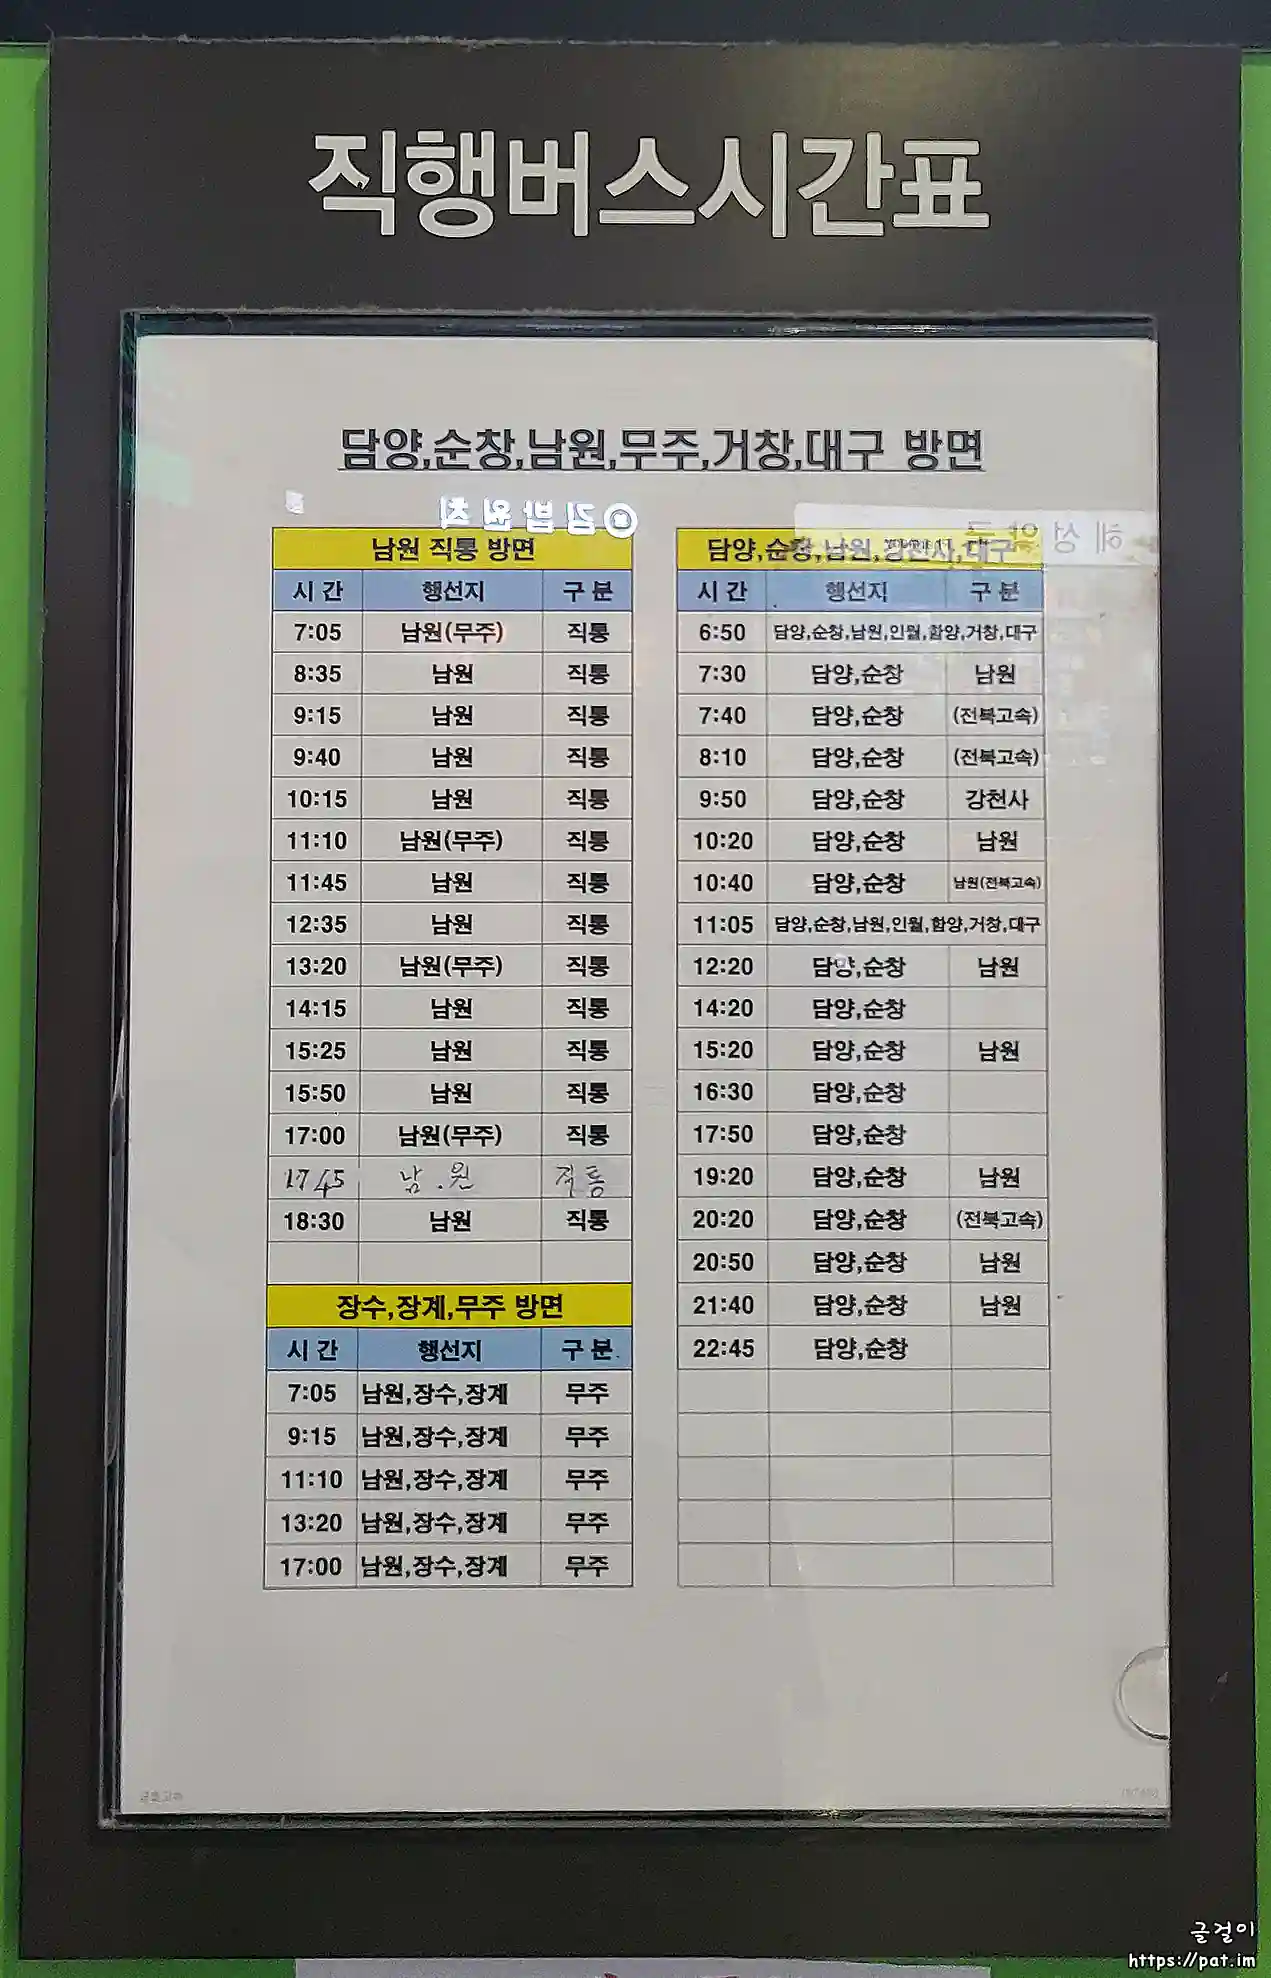 직행버스시간표
담양,순창,남원,무주,거창,대구 방면
김밥천
혜성약국
남원 직통 방면
시 간 행선지 구 분
7:05 남원(무주) 직통
8:35 남원 직통
9:15 남원 직통
9:40 남원 직통
10:15 남원 직통
11:10 남원(무주) 직통
11:45 남원 직통
12:35 남원 직통
13:20 남원(무주) 직통
14:15 남원 직통
15:25 남원 직통
15:50 남원 직통
17:00 남원(무주) 직통
17 45 남.원 직통
18:30 남원 직통
장수,장계,무주 방면
시 간 행선지 구 분
7:05 남원,장수,장계 무주
9:15 남원,장수,장계 무주
11:10 남원,장수,장계 무주
13:20 남원,장수,장계 무주
17:00 남원,장수,장계 무주
담양,순창,남원,강천사,대구
시 간 행선지 구 분
6:50 담양,순창,남원,인월,함양,거창,대구
7:30 담양,순창 남원
7:40 담양,순창 (전북고속)
8:10 담양,순창 (전북고속)
9:50 담양,순창 강천사
10:20 담양,순창 남원
10:40 담양,순창 남원(전북고속)
11:05 담양,순창,남원,인월,함양,거창,대구
12:20 담양,순창 남원
14:20 담양,순창
15:20 담양,순창 남원
16:30 담양,순창
17:50 담양,순창
19:20 담양,순창 남원
20:20 담양,순창 (전북고속)
20:50 담양,순창 남원
21:40 담양,순창 남원
22:45 담양,순창
글걸이
https://pat.im